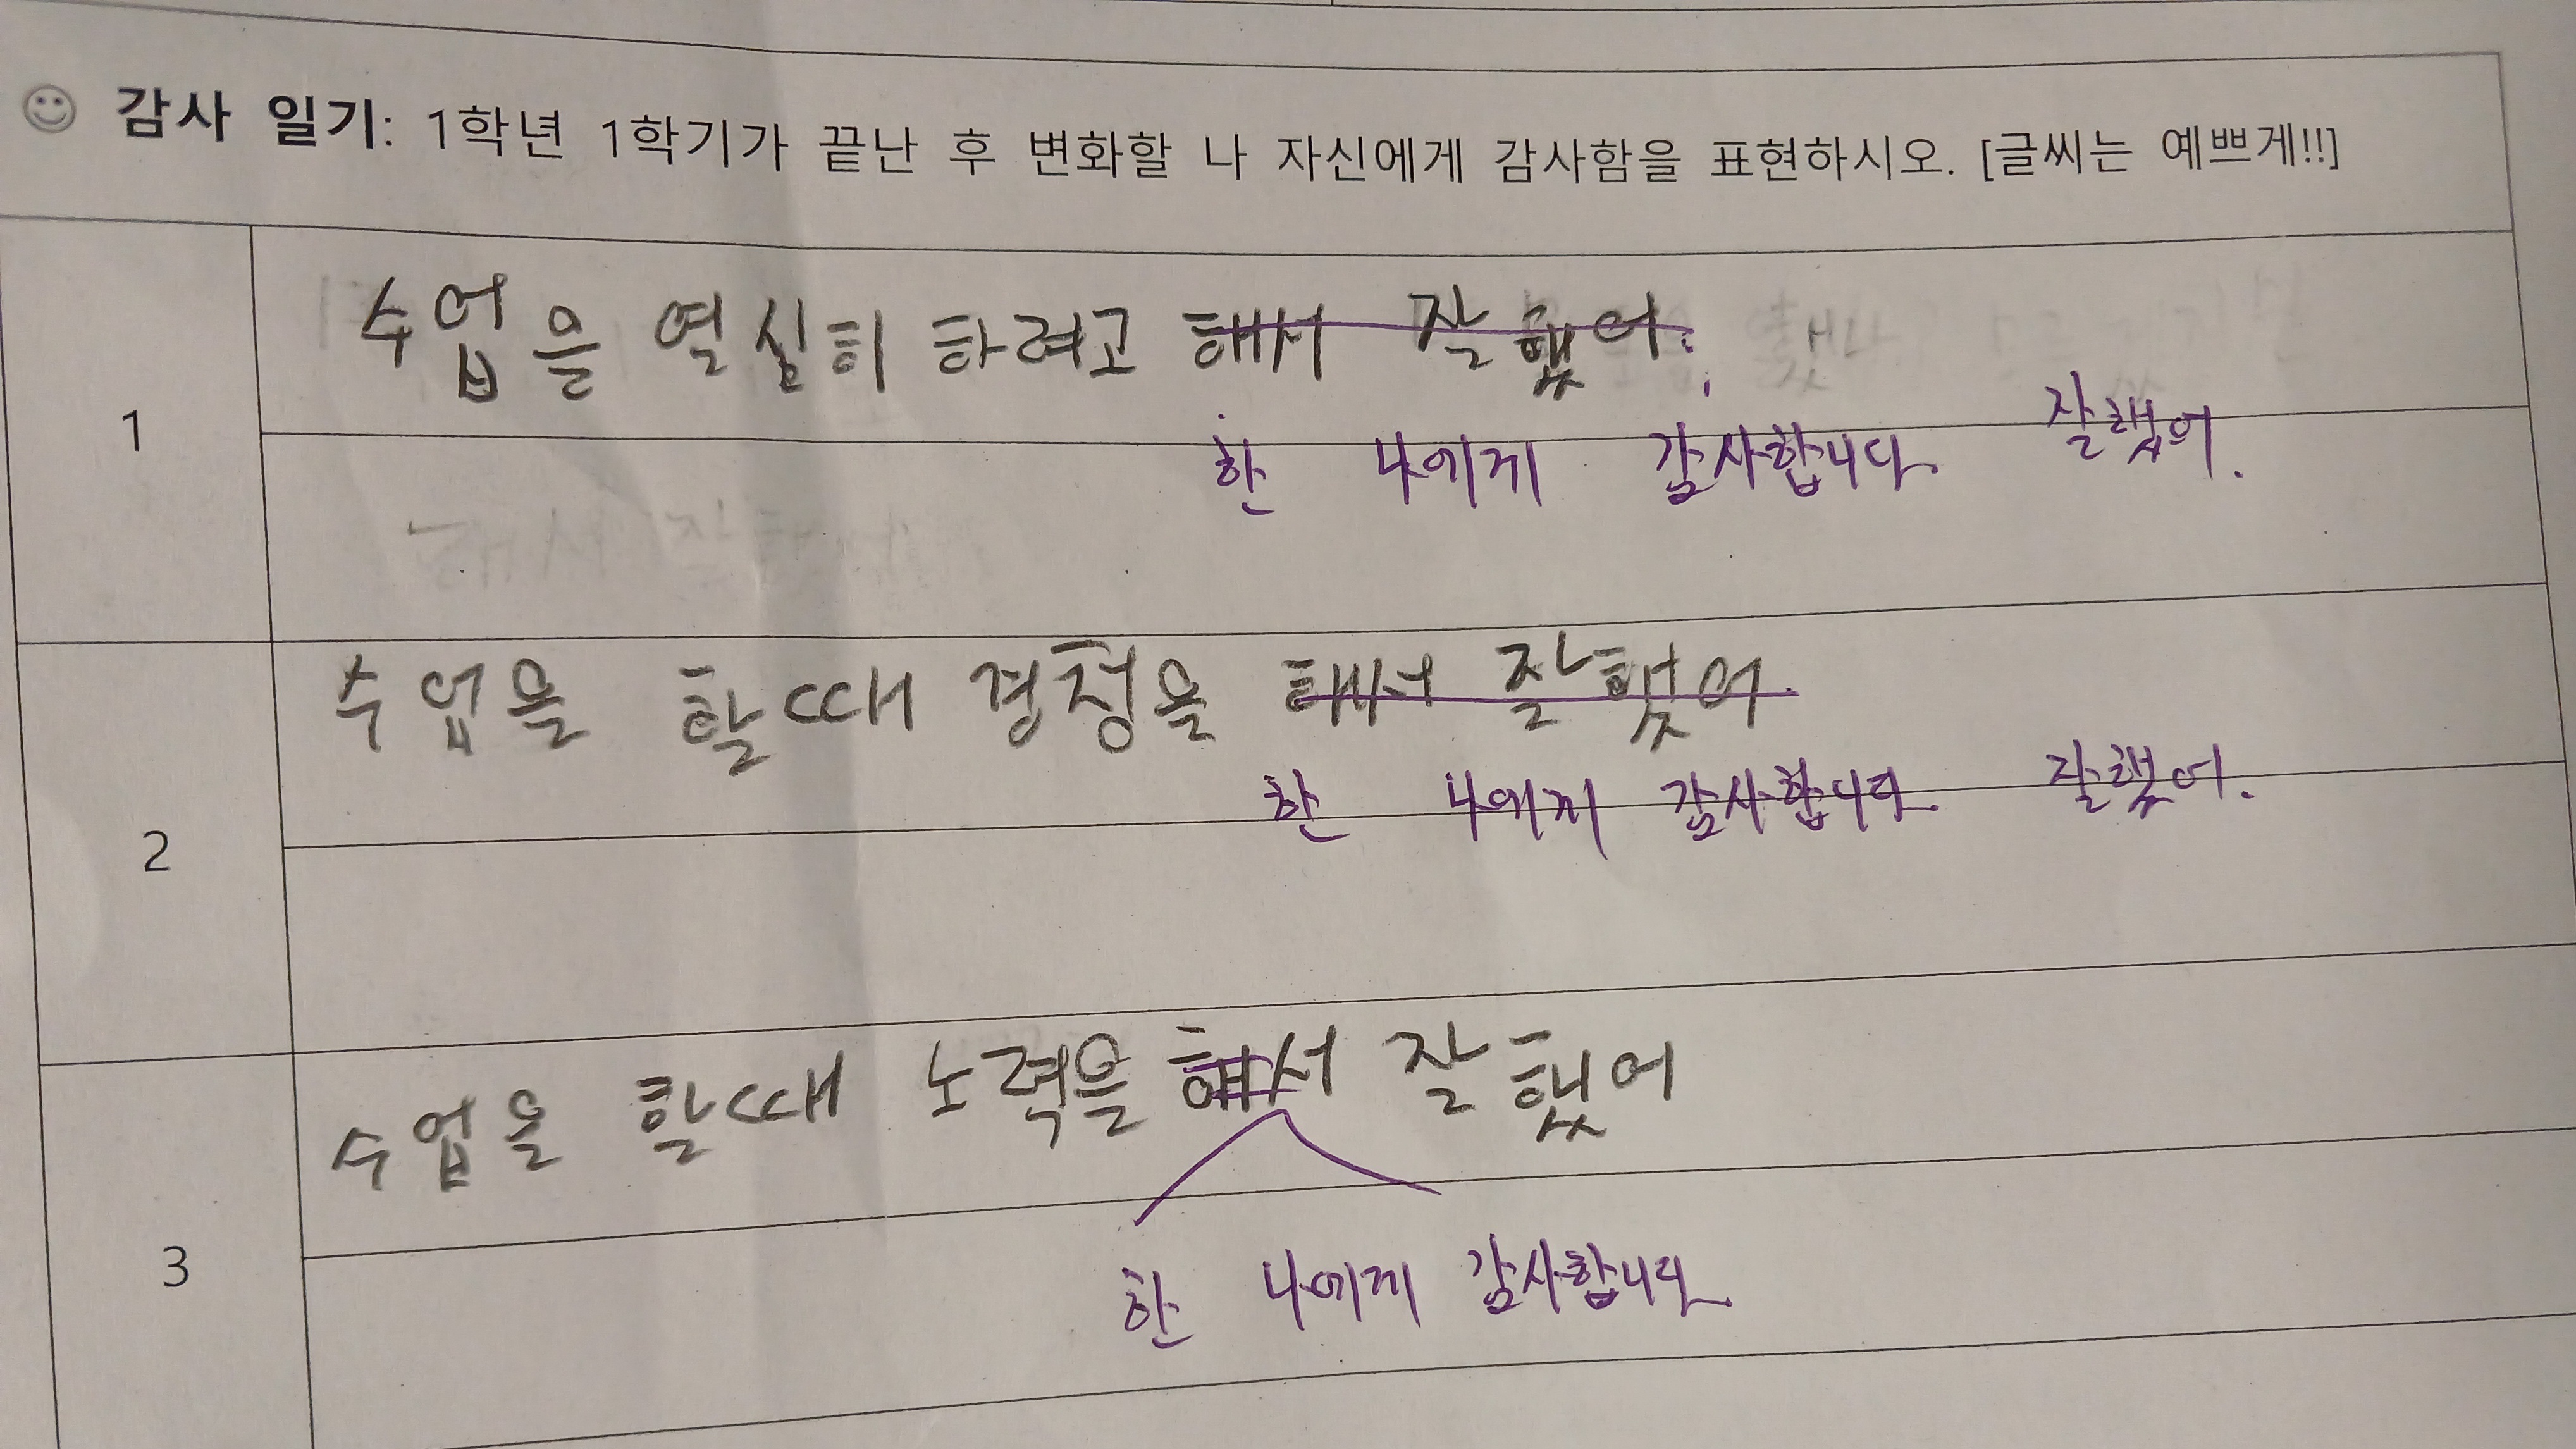 감사 일기: 1학년 1학기가 끝난 후 변화할 나 자신에게 감사함을 표현하시오. [글씨는 예쁘게!!]
1
수업을 열심히 하려고 해서 잘 했어.
한 나에게 감사합니다. 잘했어.
2
수업을 할때 경청을 해서 잘했어.
한 나에게 감사합니다. 잘했어.
3
수업을 할때 노력을 해서 잘 했어
한 나에게 감사합니다.